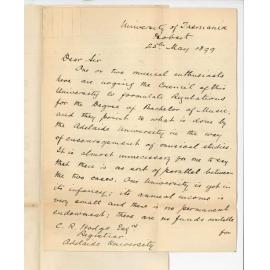 University of Tasmania
Hobart
25th May 1899
Dear Sir
One or two musical enthusiasts
here are urging the Council of this
University to formulate Regulations
for the Degree of Bachelor of Music,
and they point to what is done by
the Adelaide University in the way
of encouragement of musical studies.
It is almost unnecessary for me to say
that there is no sort of parallel between
the two cases. Our University is yet in
its infancy; its annual income is
very small and there is no permanent
endowment; there are no funds available
for
C. R. Hodge Esqre
Registrar
Adelaide University